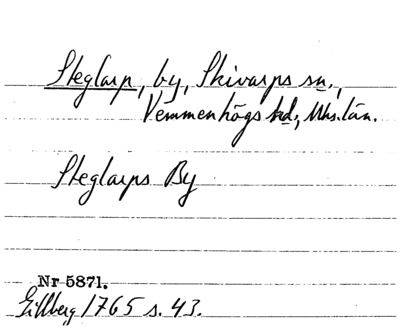 Steglarp, by, Skivarps sn.,
Vemmenhögs hd., Mhs. län.
Steglarps By
Nr 5871.
Gillberg 1765 s. 43.